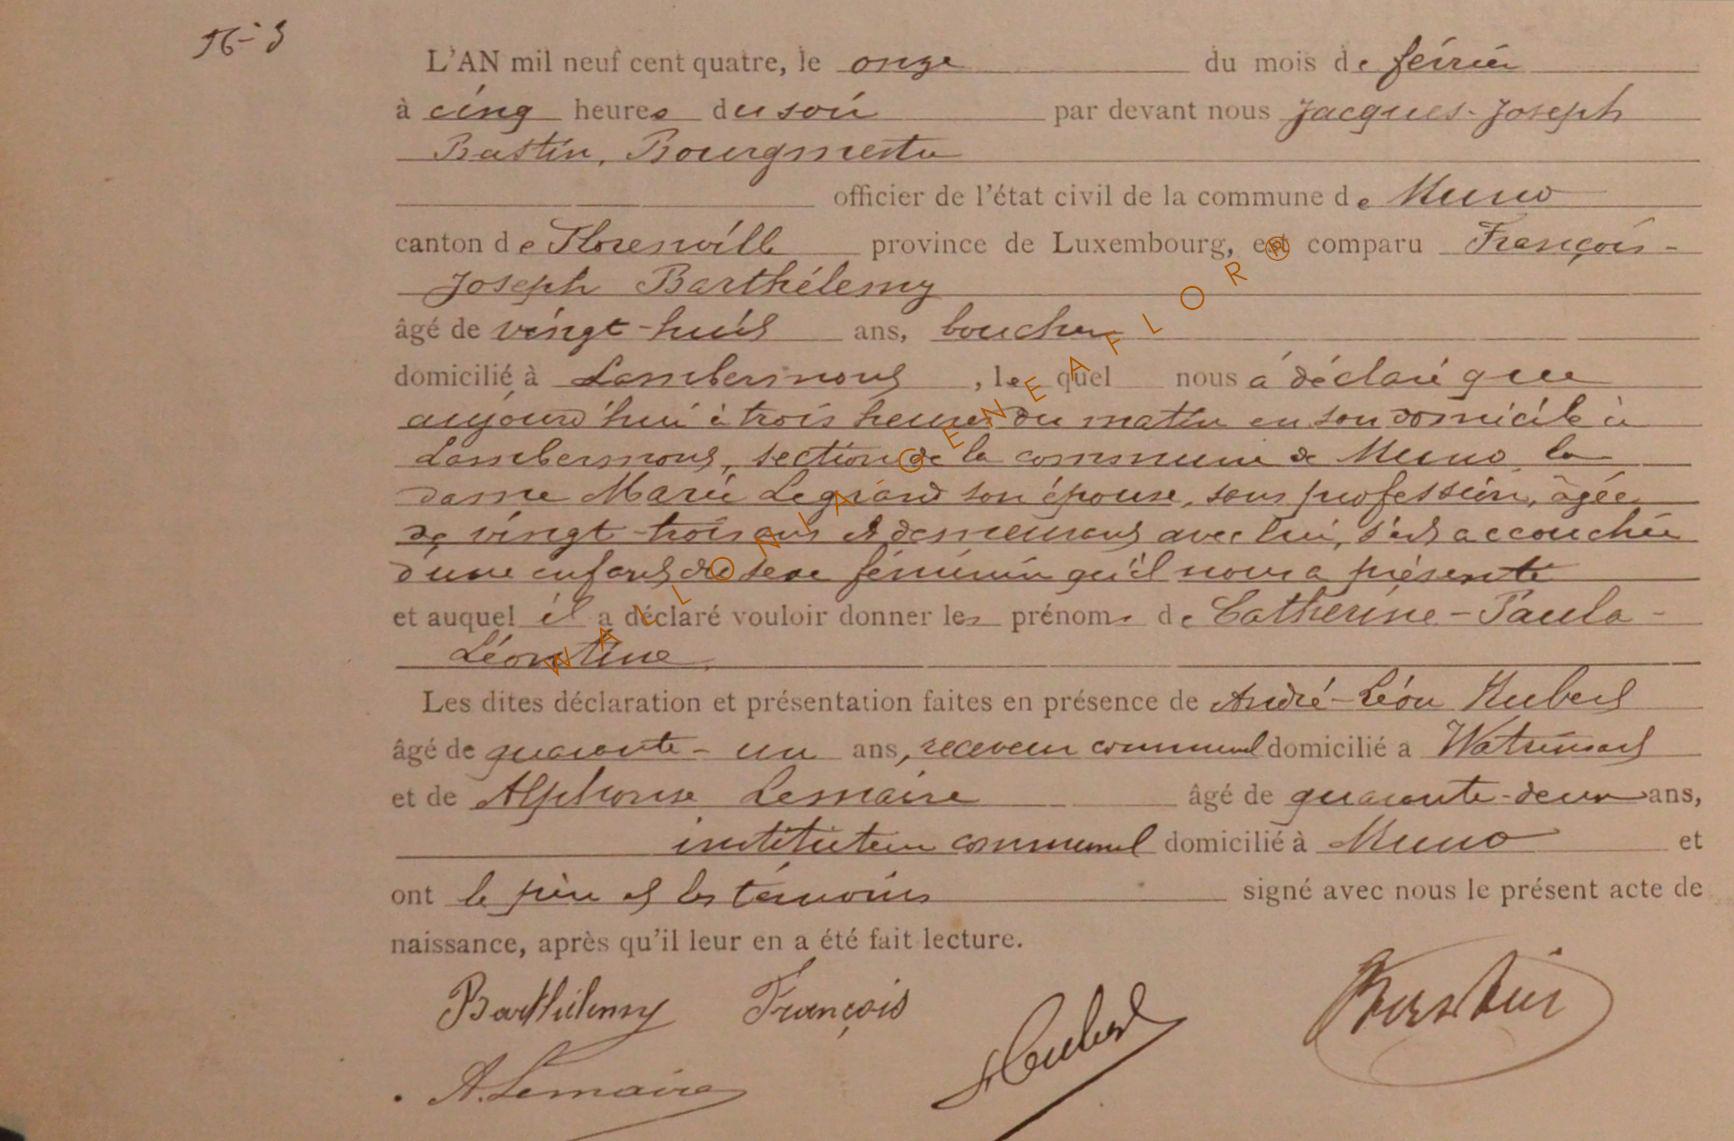 56-3
L'AN mil neuf cent quatre, le onze du mois de février
à cinq heures du soir par devant nous Jacques-Joseph
Bastin, Bourgmestre
officier de l'état civil de la commune de Muno
canton de Florenville province de Luxembourg, est comparu François-
Joseph Barthélemy
âgé de vingt-huit ans, boucher
domicilié à Lambermont, lequel nous a déclaré que
aujourd'hui à trois heures du matin en son domicile à
Lambermont, section de la commune de Muno, la
dame Marie Legrand son épouse, sans profession, âgée
de vingt-trois ans et demeurant avec lui, s'est accouchée
d'une enfant du sexe féminin qu'il nous a présenté
et auquel il a déclaré vouloir donner les prénoms de Catherine-Paula-
Léontine.
Les dites déclaration et présentation faites en présence de André-Léon Hubert
âgé de quarante-un ans, receveur communal domicilié a Watrinsart
et de Alphonse Lemaire âgé de quarante-deux ans,
instituteur communal domicilié à Muno et
ont le père et les témoins signé avec nous le présent acte de
naissance, après qu'il leur en a été fait lecture.
Barthélemy François
Hubert
Bastin
A. Lemaire
WALLONIA GENEAFLOR®